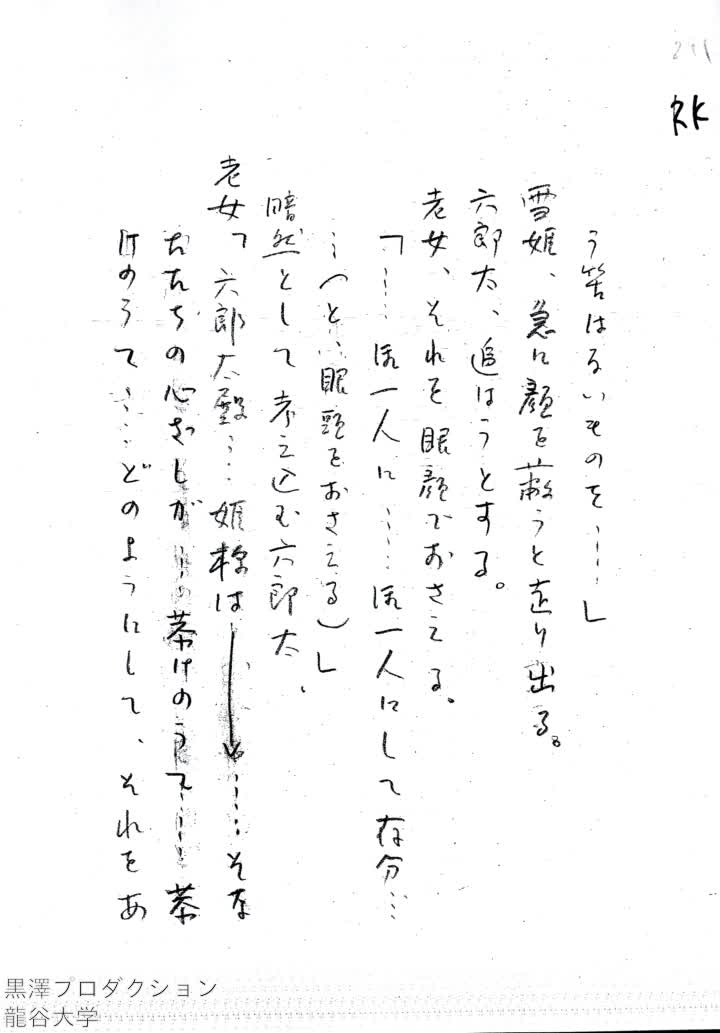 211
RK
う筈はるいものを……」
雪姫、急に顔を蔽うと走り出る。
六郎太、追はうとする。
老女、それを眼顔でおさえる。
「……お一人に……お一人にして存分…
…（と、眼頭をおさえる）」
暗然として考え込む六郎太、
老女「六郎太殿……姫様は……そな
たたちの心ざしが……忝けのうて……忝
けのうて……どのようにして、それをあ
黒澤プロダクション
龍谷大学